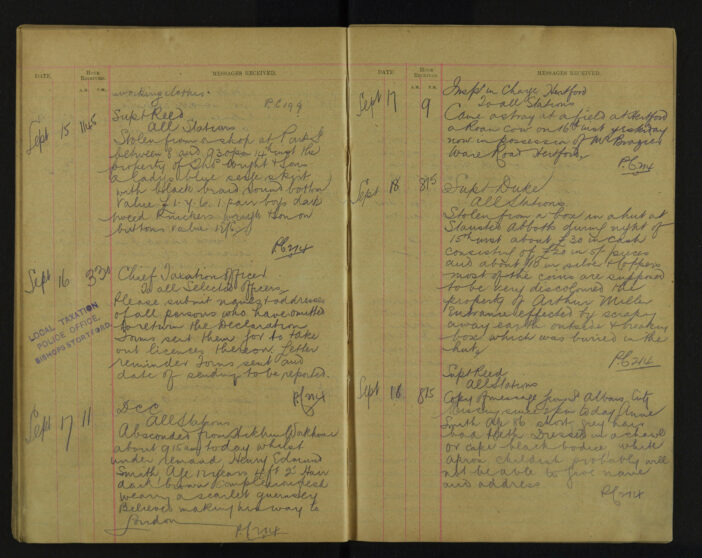 DATE. HOUR RECEIVED. MESSAGES RECEIVED.
A.M. P.M.
working clothes.
P.C. 199
Sept 15 1145 Supt Reed
All Stations
Stolen from a shop at
between 8 and 9.30 pm 14th inst the
property of Chas Wright & Sons
a ladys blue serge skirt
with black braid round bottom
value £1. 1 pair boys dark
tweed Knickers
buttons value
PC 214
Sept 16 330 Chief Taxation Officer
To all Selected Officers
Please submit names & addresses
of all persons who have omitted
to return the Declaration
Forms sent them for to take
out licences thereon. Letter
reminder forms sent and
date of sending to be reported.
PC 214
LOCAL TAXATION
POLICE OFFICE,
BISHOPS STORTFORD.
Sept 17 11 DCC
All Stations
Absconded from Hitchin Workhouse
about 9.15 am today whilst
under remand Henry Edmund
Smith Age 12 years 4 ft 2 Hair
dark brown Complexion fresh
wearing a scarlet guernsey
Believed making his way to
London
PC 214
DATE. HOUR RECEIVED. MESSAGES RECEIVED.
A.M. P.M.
Sept 17 9 Inspr in Charge Hertford
To all Stations
Came astray at a field at Hertford
a Roan Cow on 16th inst yesterday
now in possession of Mr Brazier
Ware Road Hertford
PC 214
Sept 18 815 Supt Duke
All Stations
Stolen from a box in a hut at
Stansted Abbotts during night of
15th inst about £30 in cash
consisting of £20 in £1 pieces
and about £10 in silver & others
most of the coins are supposed
to be very discoloured the
property of Arthur Miller
Entrance effected by scraping
away earth outside & breaking
box which was buried in the
hut
PC 214
Sept 18 815 Supt Reed
All Stations
Copy of message from St Albans City
Missing since today Annie
Smith Age 86 short grey hair
bad teeth Dressed in a shawl
or cape black bodice white
apron childish probably will
not be able to give name
and address
PC 214